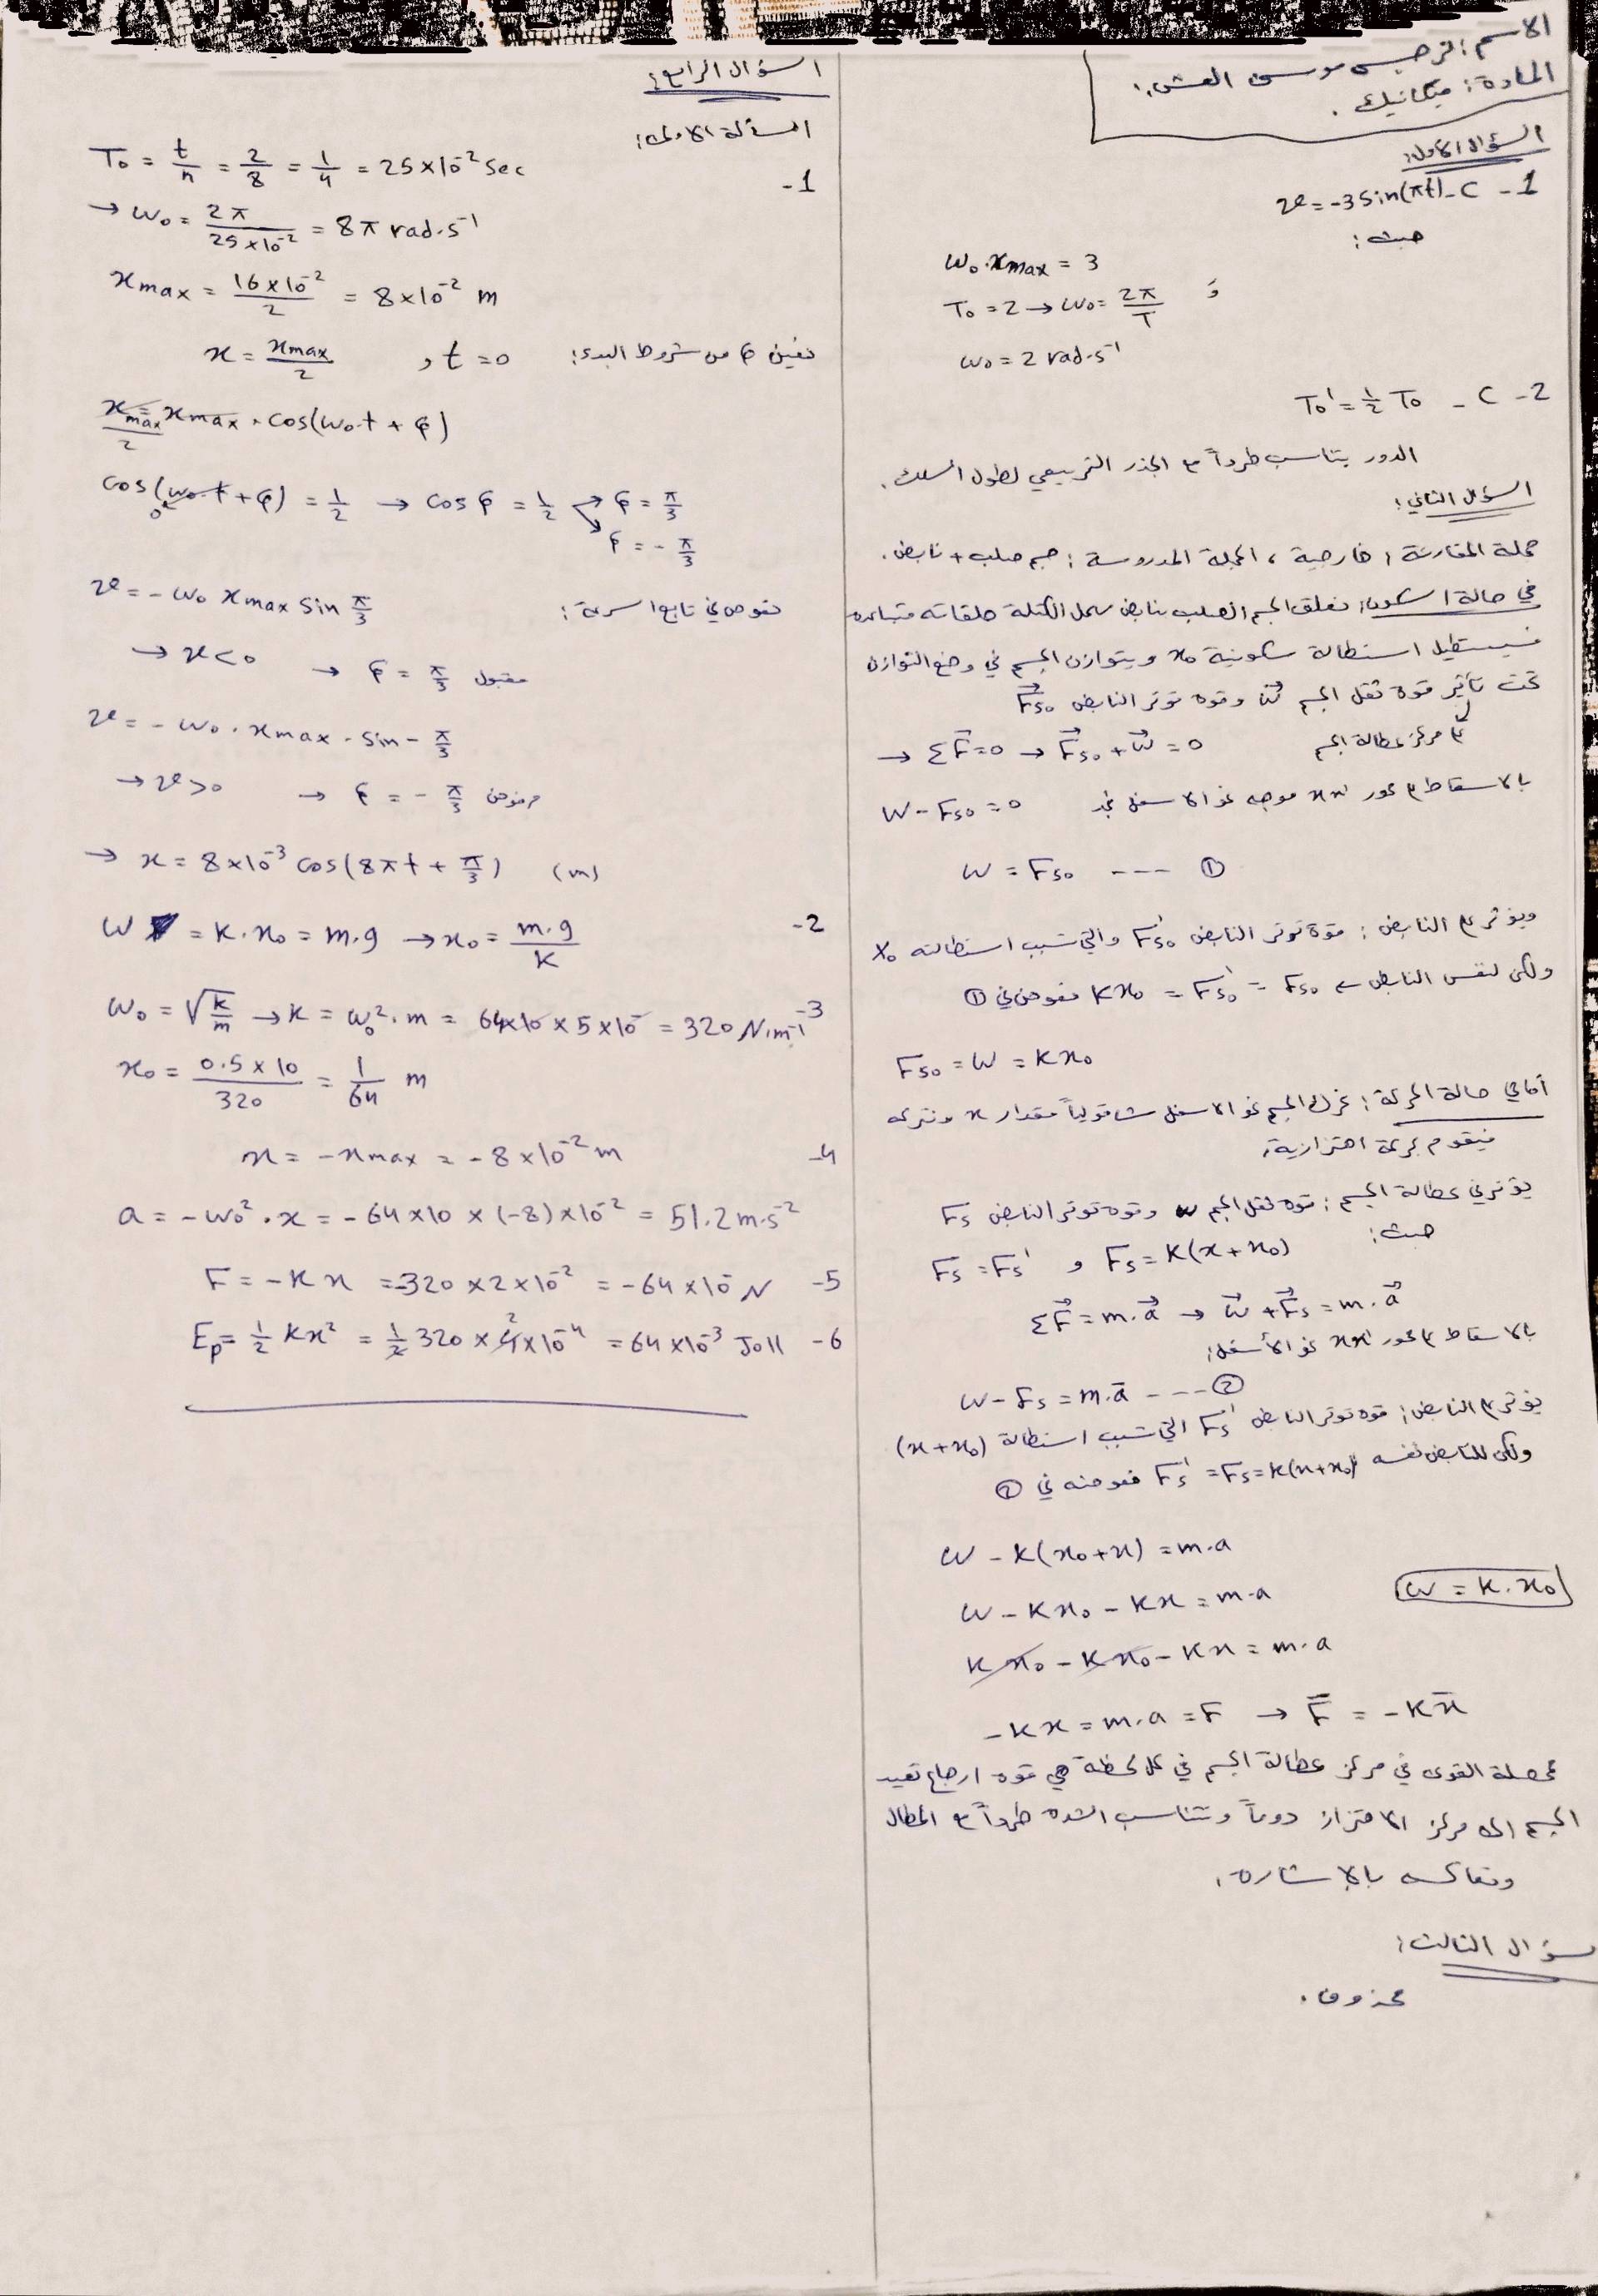 الاسم: نرجس موسى العش
المادة: ميكانيك.
السؤال الأول:
1- C - v = -3 sin(πt)
حيث:
ω₀ . xmax = 3
و T₀ = 2 → ω₀ = 2π/T
ω₀ = 2 rad.s⁻¹
2- C - T₀' = 1/2 T₀
الدور يتناسب طرداً مع الجذر التربيعي لطول السلك.
السؤال الثاني:
جملة المقارنة: خارجية، الجملة المدروسة: جسم صلب + نابض.
في حالة السكون: نعلق الجسم الصلب بنابض مهمل الكتلة حلقاته متباعدة
فيستطيل استطالة سكونية x₀ ويتوازن الجسم في وضع التوازن
تحت تأثير قوة ثقل الجسم W وقوة توتر النابض Fs₀
في مركز عطالة الجسم → ΣF = 0 → Fs₀ + W = 0
بالاسقاط على محور xx' موجه نحو الاسفل نجد W - Fs₀ = 0
W = Fs₀ ---- ①
ويؤثر على النابض: قوة توتر النابض Fs₀' والتي تسبب استطالته x₀
ولكن لنفس النابض ← Fs₀ = Fs₀' = kx₀ نعوض في ①
Fs₀ = W = kx₀
أما في حالة الحركة: نحرك الجسم نحو الاسفل شاقولياً مقدار x ونتركه
فيقوم بحركة اهتزازية:
يؤثر في عطالة الجسم: قوة ثقل الجسم W وقوة توتر النابض Fs
حيث: Fs = k(x + x₀) و Fs = Fs'
ΣF = m.a → W + Fs = m.a
بالاسقاط على محور xx' نحو الأسفل:
W - Fs = m.a ---- ②
يؤثر على النابض: قوة توتر النابض Fs' التي تسبب استطالة (x+x₀)
ولكن للنابض نفسه Fs' = Fs = k(x+x₀) نعوضه في ②
W - k(x₀+x) = m.a
W - kx₀ - kx = m.a
W = k.x₀
kx₀ - kx₀ - kx = m.a
-kx = m.a = F → F = -kx
محصلة القوى في مركز عطالة الجسم في كل لحظة هي قوة ارجاع تعيد
الجسم الى مركز الاهتزاز دوماً وتتناسب الشدة طرداً مع المطال
وتعاكسه بالإشارة.
سؤال الثالث:
محذوف.
السؤال الرابع:
المسألة الاولى:
1- T₀ = t/n = 2/8 = 1/4 = 25×10⁻² Sec
→ ω₀ = 2π/(25×10⁻²) = 8π rad.s⁻¹
xmax = 16×10⁻²/2 = 8×10⁻² m
نعين φ من شروط البدء: t = 0 , x = xmax/2
xmax/2 = xmax . cos(ω₀.t + φ)
cos(ω₀.t + φ) = 1/2 → cos φ = 1/2 → φ = π/3
φ = -π/3
نعوض في تابع السرعة: v = -ω₀ xmax sin π/3
→ v < 0 → φ = π/3 مقبول
v = -ω₀ . xmax . sin - π/3
→ v > 0 → φ = -π/3 مرفوض
→ x = 8×10⁻³ cos(8πt + π/3) (m)
2- W = k.x₀ = m.g → x₀ = m.g/k
3- ω₀ = √(k/m) → k = ω₀².m = 64×10 × 5×10⁻ = 320 N.m⁻¹
x₀ = 0.5×10/320 = 1/64 m
4- x = -xmax = -8×10⁻² m
a = -ω₀².x = -64×10×(-8)×10⁻² = 51.2 m.s⁻²
5- F = -kx = -320×2×10⁻² = -64×10⁻ N
6- Ep = 1/2 kx² = 1/2 320×4×10⁻⁴ = 64×10⁻³ Joll